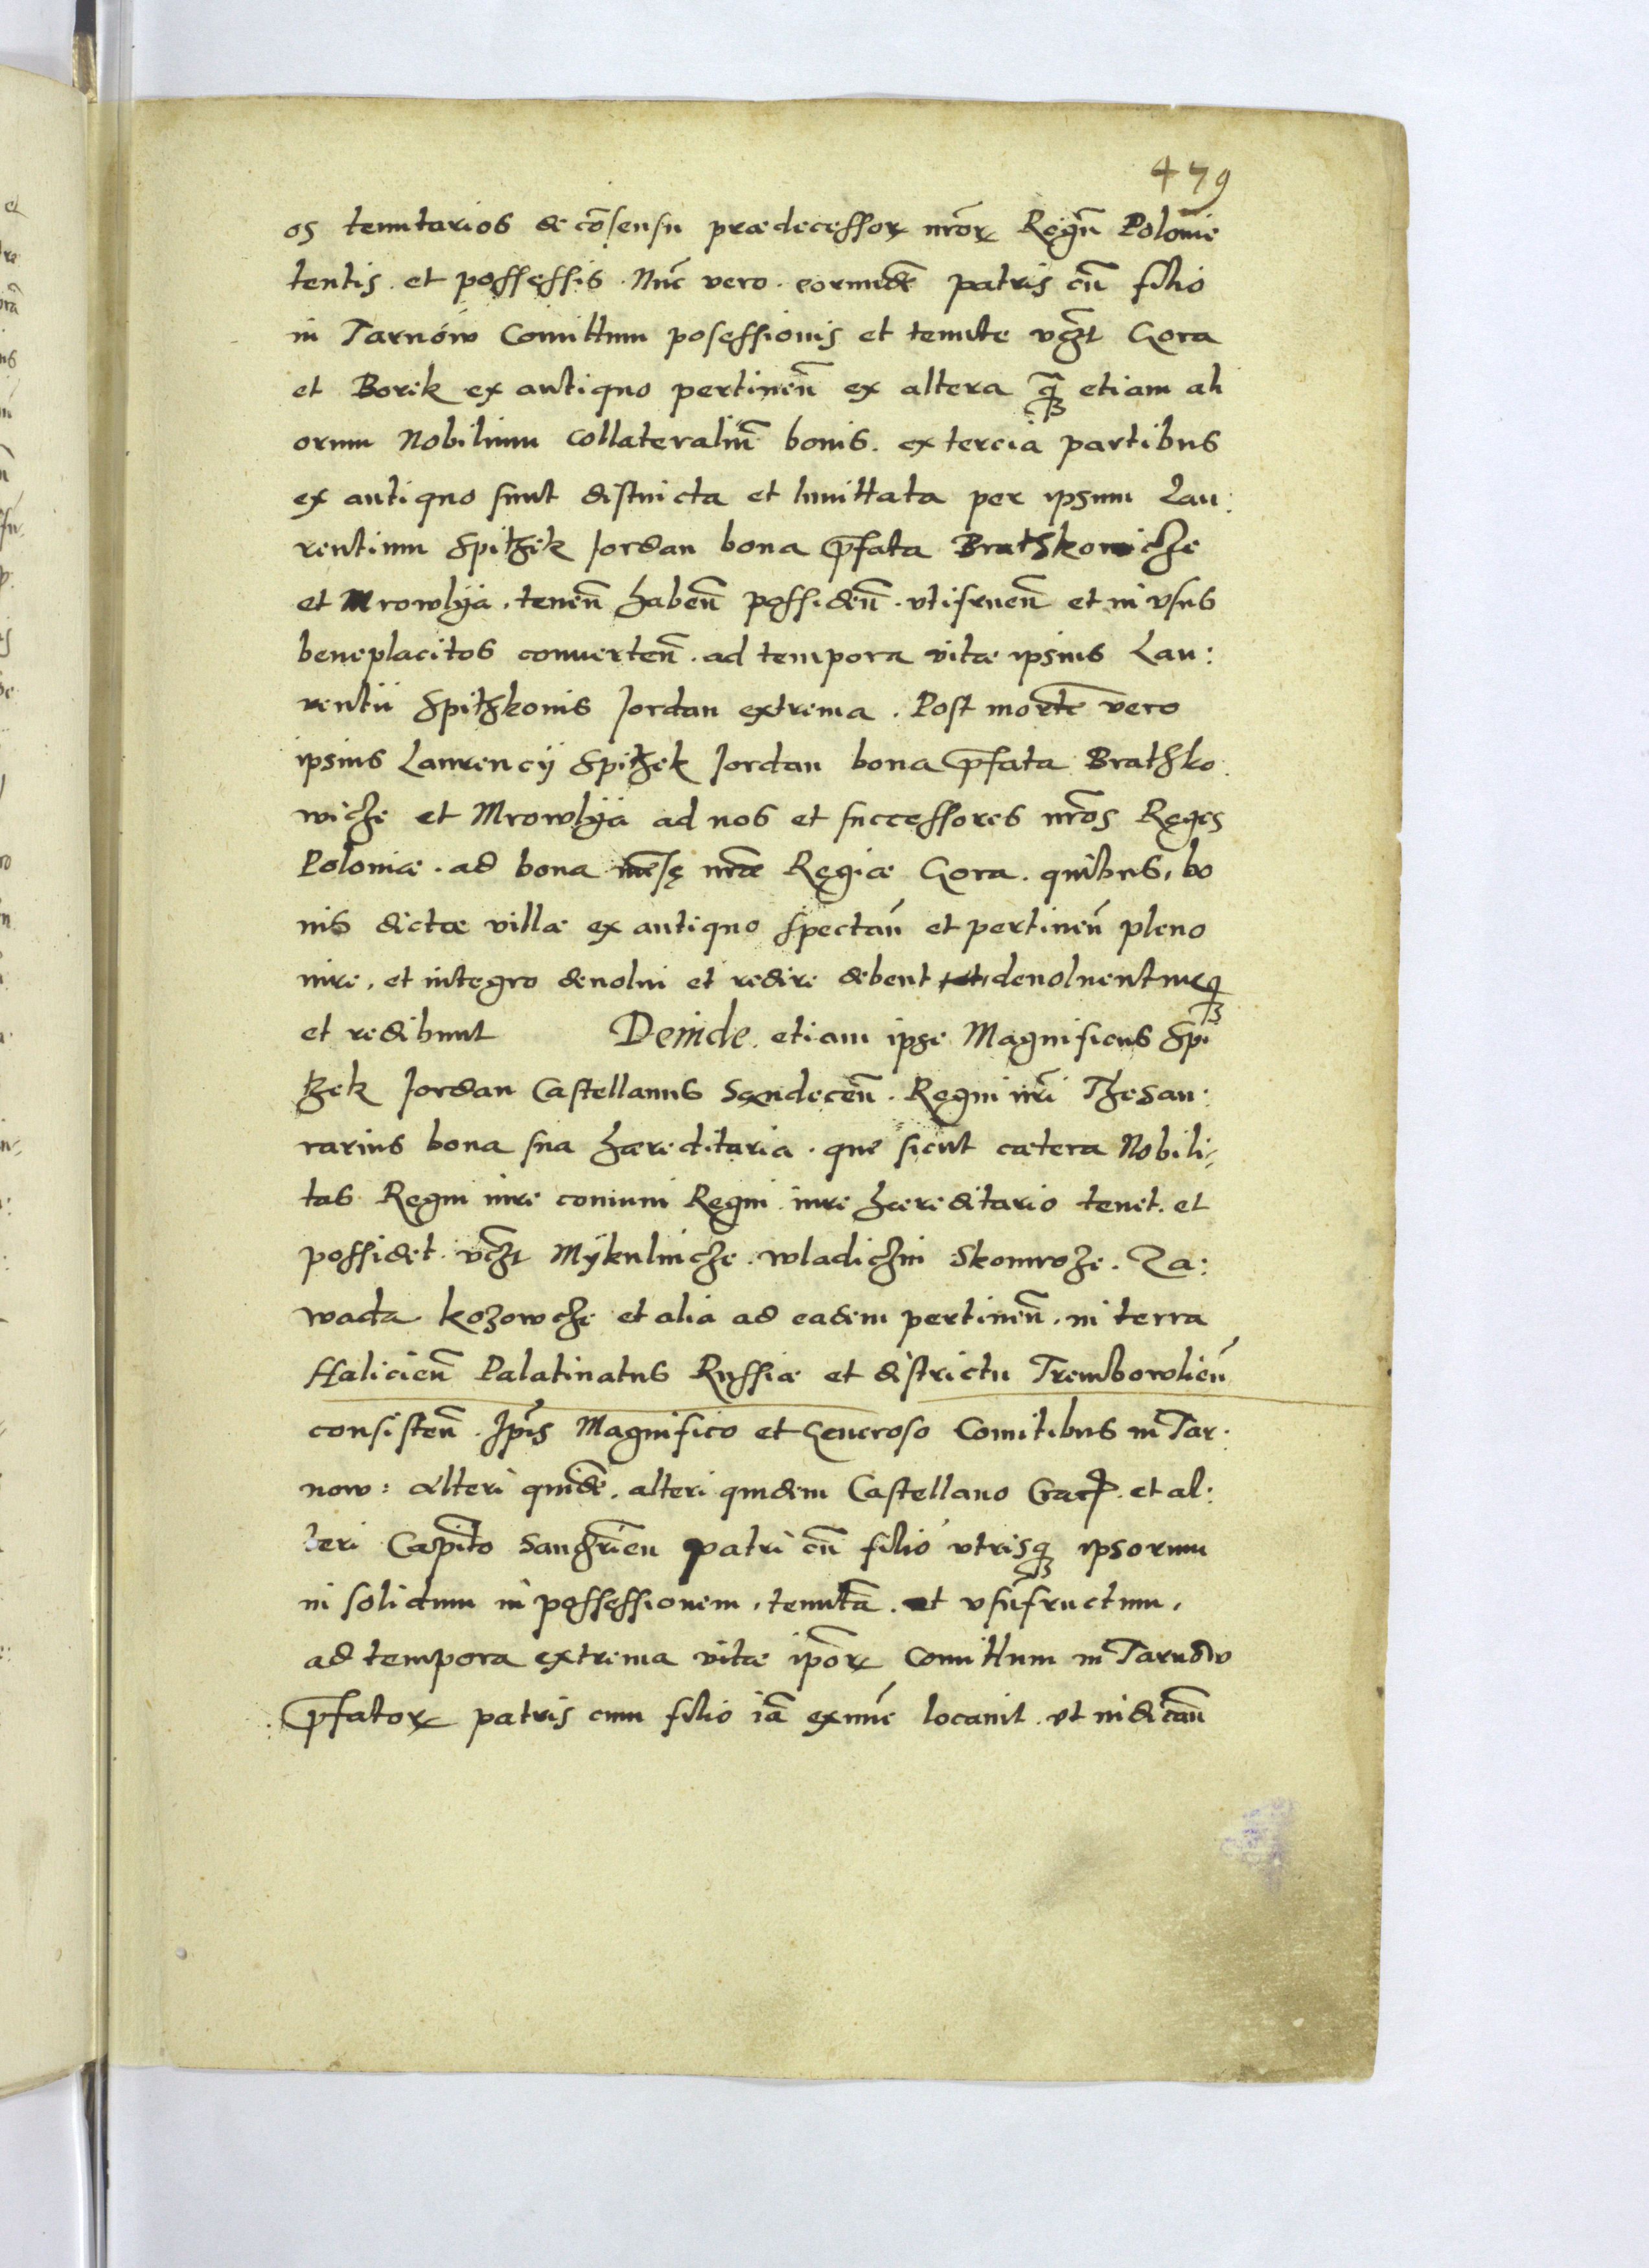 479
os tenutarios de cōsensu praedecessorꝝ nr̄orꝝ Regū Poloniē
tentis. et possessis. Nūc vero. eorundē patris cū filio
in Tarnów Comittum posessionis et tenute vc̄zt Gora
et Borek ex antiquo pertinen̄ ex altera q̄ꝫ etiam ali
orum Nobilium collateraliū bonis. ex tercia partibus
ex antiquo sunt distincta et limittata per ipsum Lau:
rentium Spitzek Jordan bona p̄fata Brathkowicze
et Mrowlya. tenen̄ haben̄ possiden̄. vtifruen̄ et in vsus
beneplacitos conuerten̄. ad tempora vitae ipsius Lau:
rentii Spitzkonis Jordan extrema. Post mortē vero
ipsius Laurencÿ Spitzek Jordan bona p̄fata Brathko
wicze et Mrowlÿa ad nos et successores nr̄os Reges
Poloniæ. ad bona mēsę nr̄æ Regiæ Gora. quibus, bo
nis dictæ villæ ex antiquo spectan̄ et pertinen̄ pleno
iure, et integro deuolui et redire debent deuoluenturqꝫ
et redibunt Deinde. etiam ipse Magnificus Spi
tzek Jordan Castellanus Sandecen̄. Regni nr̄i Thesau:
rarius bona sua hæreditaria. que sicut cætera Nobili,
tas Regni iure comuni Regni iure hæreditario tenet. et
possidet. vc̄zt Mÿkulincze. wladiczin Skomroze. Za:
wada kozowcze et alia ad eadem pertinen̄. in terra
Halicien̄ Palatinatus Russiæ et districtu Trembowlien̄
consisten̄. Ip̄is Magnifico et Generoso Comitibus in Tar:
now: alteri quidē. alteri quidem Castellano Crac. et al:
teri Capito Sandomirien patri cū filio vtrisqꝫ ipsorum
in solidum in possessionem, tenutā. et vsūfructum,
ad tempora extrema vitæ ip̄orꝝ Comittum in Tarnów
p̄fatorꝝ patris cum filio iā ex nūc locauit. vt indican̄